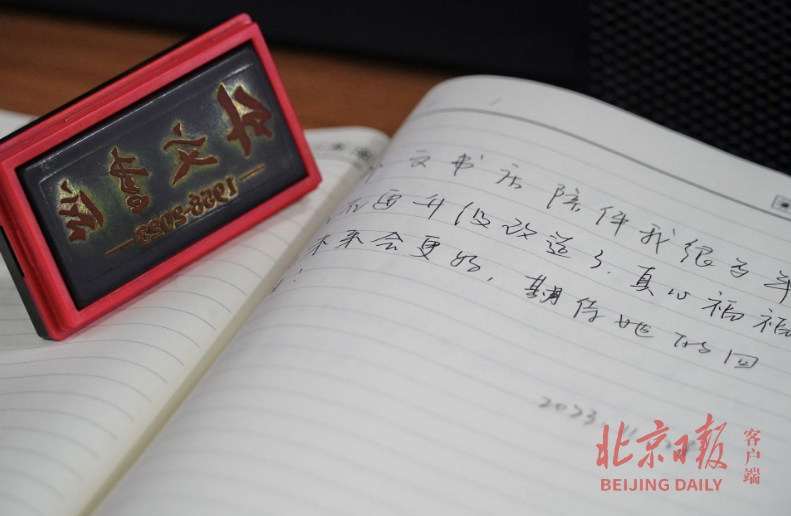 文书店陪伴我很多年
升级改造了.真心祝福
未来会更好,期待她的回
2023.11
1958-2023
北京日报
客户端
BEIJING DAILY